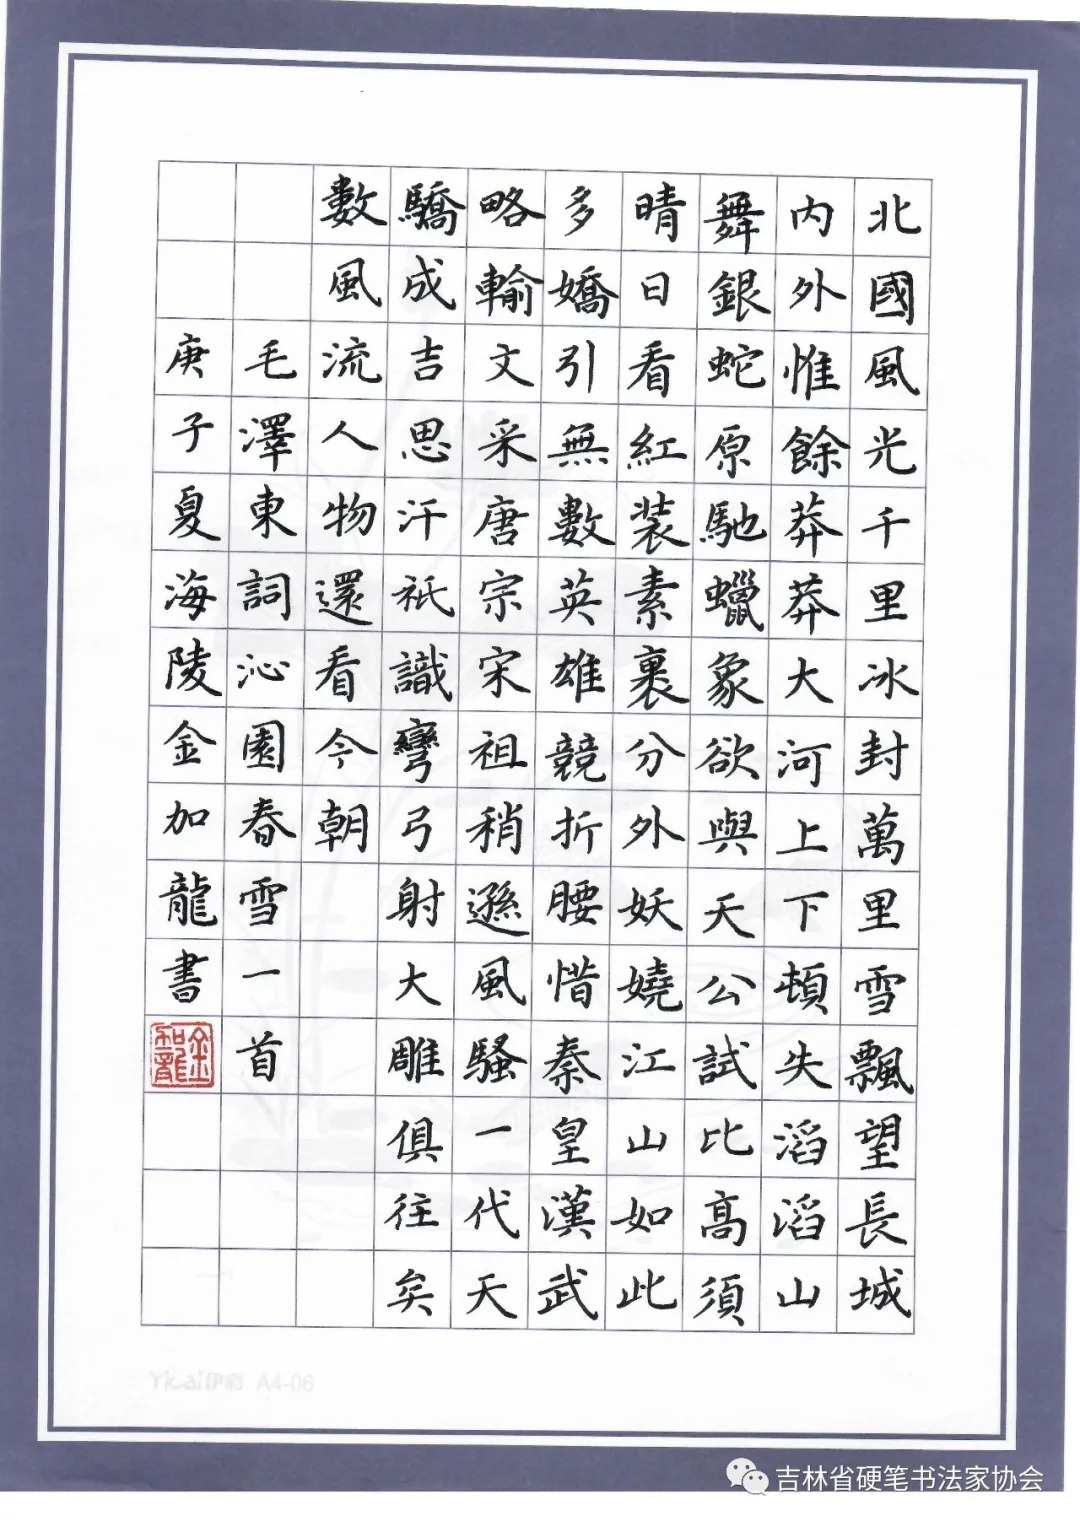 北國風光千里冰封萬里雪飄望長城
内外惟餘莽莽大河上下頓失滔滔山
舞銀蛇原馳蠟象欲與天公試比高須
晴日看紅装素裹分外妖嬈江山如此
多嬌引無數英雄競折腰惜秦皇漢武
略輸文采唐宗宋祖稍遜風騷一代天
驕成吉思汗祇識彎弓射大雕俱往矣
數風流人物還看今朝
毛澤東詞沁園春雪一首
庚子夏海陵金加龍書
金加龍
A4-06
吉林省硬笔书法家协会